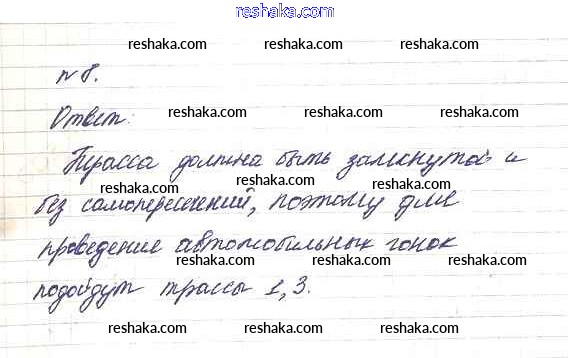 reshaka.com
reshaka.com reshaka.com reshaka.com
№ 8.
Ответ: reshaka.com reshaka.com reshaka.com
Трасса должна быть замкнутой и
reshaka.com reshaka.com reshaka.com
без самопересечений, поэтому для
reshaka.com reshaka.com reshaka.com
проведение автомобильных гонок
reshaka.com reshaka.com reshaka.com
подойдут трассы 1, 3.
reshaka.com reshaka.com reshaka.com